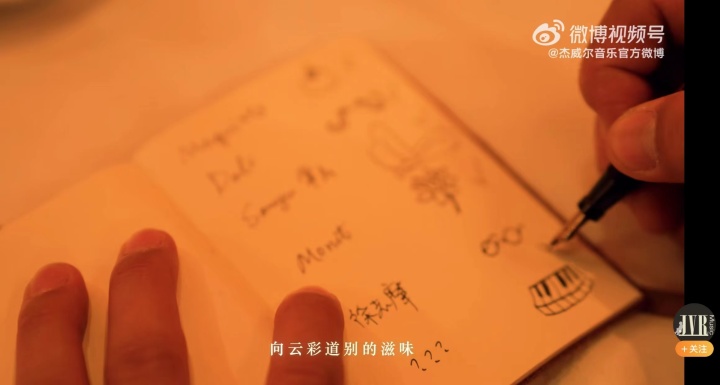 微博视频号
@杰威尔音乐官方微博
Magritte
Dalí
Sanyu 常玉
Monet
徐志摩
???
向云彩道别的滋味
JVR Music
+关注